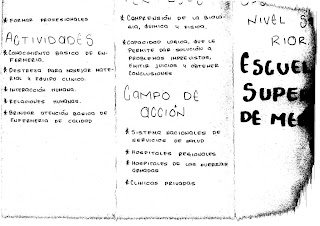 * FORMAR PROFESIONALES
ACTIVIDADES
* CONOCIMIENTO BASICO DE EN-
FERMERIA.
* DESTREZA PARA MANEJAR MATE-
RIAL Y EQUIPO CLINICO.
* INTERACCIÓN HUMANA.
* RELACIONES HUMANAS.
* BRINDAR ATENCIÓN BASICA DE
ENFERMERIA DE CALIDAD
* COMPRENSIÓN DE LA BIOLO-
GIA, QUIMICA Y FISICA.
* CAPACIDAD LOGICA, QUE LE
PERMITE DAR SOLUCIÓN A
PROBLEMAS IMPREVISTOS,
EMITIR JUICIOS Y OBTENER
CONCLUSIONES
CAMPO DE
ACCIÓN
* SISTEMA NACIONALES DE
SERVICIOS DE SALUD
* HOSPITALES REGIONALES
* HOSPITALES DE LAS FUERZAS
ARMADAS
* CLINICAS PRIVADAS
NIVEL S
RIOR
ESCUE
SUPE
DE ME